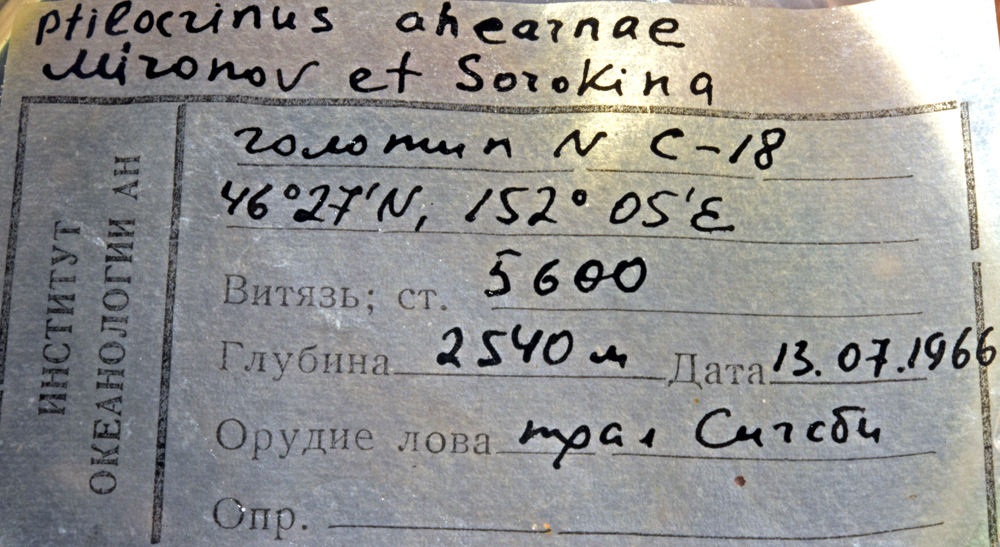 ptilocrinus ahearnae
Mironov et Sorokina
ИНСТИТУТ
ОКЕАНОЛОГИИ АН
голотип N С-18
46°27'N, 152° 05'E
Витязь; ст. 5600
Глубина 2540 м Дата 13.07.1966
Орудие лова трал Сигсби
Опр.